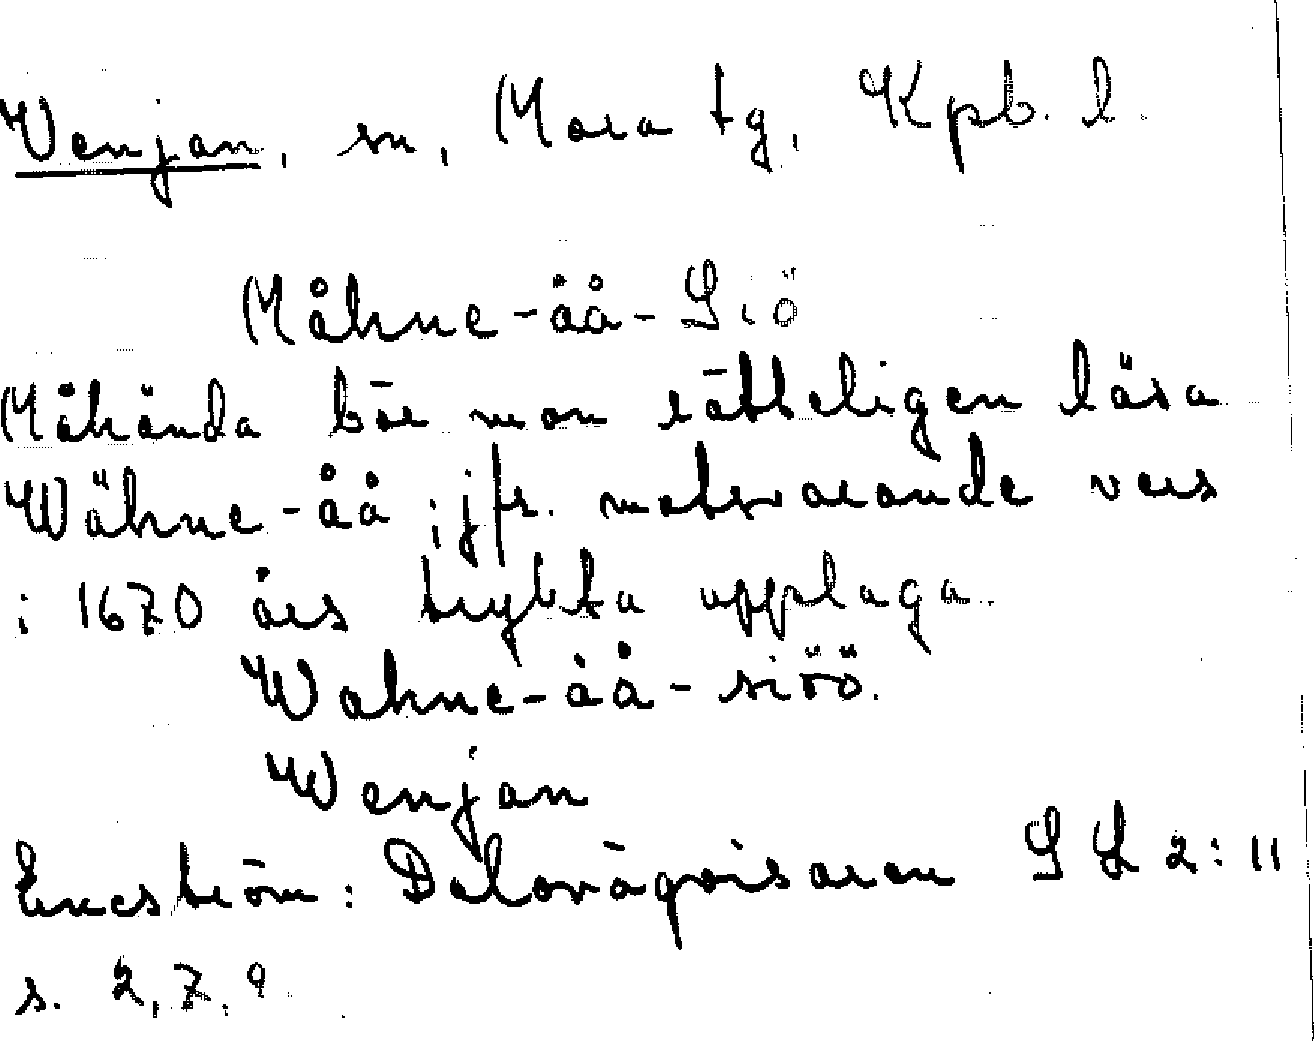 Wenjan, sn, Mora tg, Kpb. l.
Måhne-åå-Siö
Måhända bör man rätteligen läsa
Wähne-åå; jfr. motsvarande vers
i 1670 års tryckta upplaga.
Wahne-åå-siöö.
Wenjan
Eneström: Dalavägvisaren SL 2:11
s. 2, 7, 9